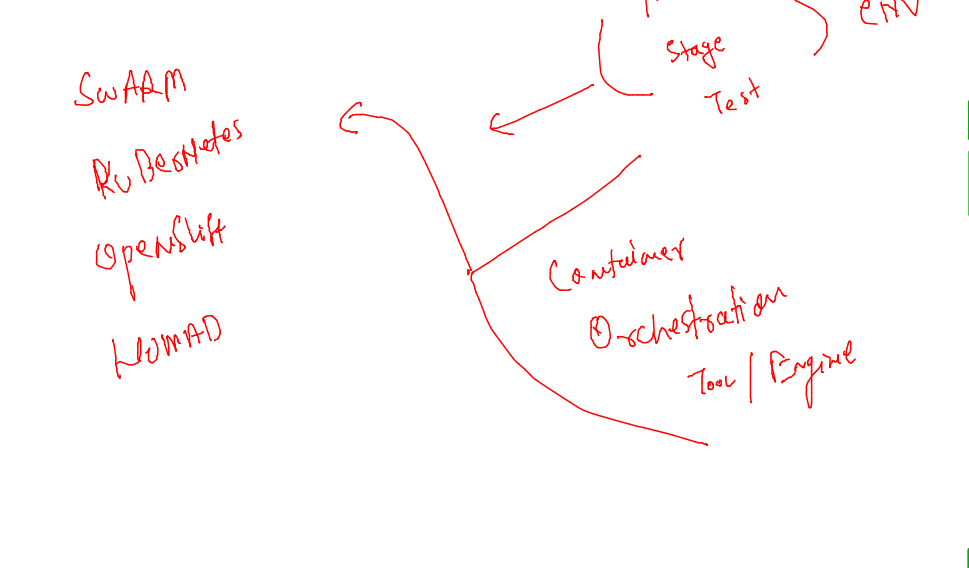 ENV
Stage
Test
SWARM
KUBERNetes
OPENShift
NOMAD
Container
Orchestration
Tool / Engine